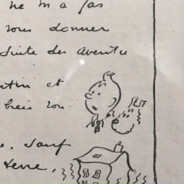 ne m'a pas
vous donner
suite des aventu
et
bien
sauf
terre,